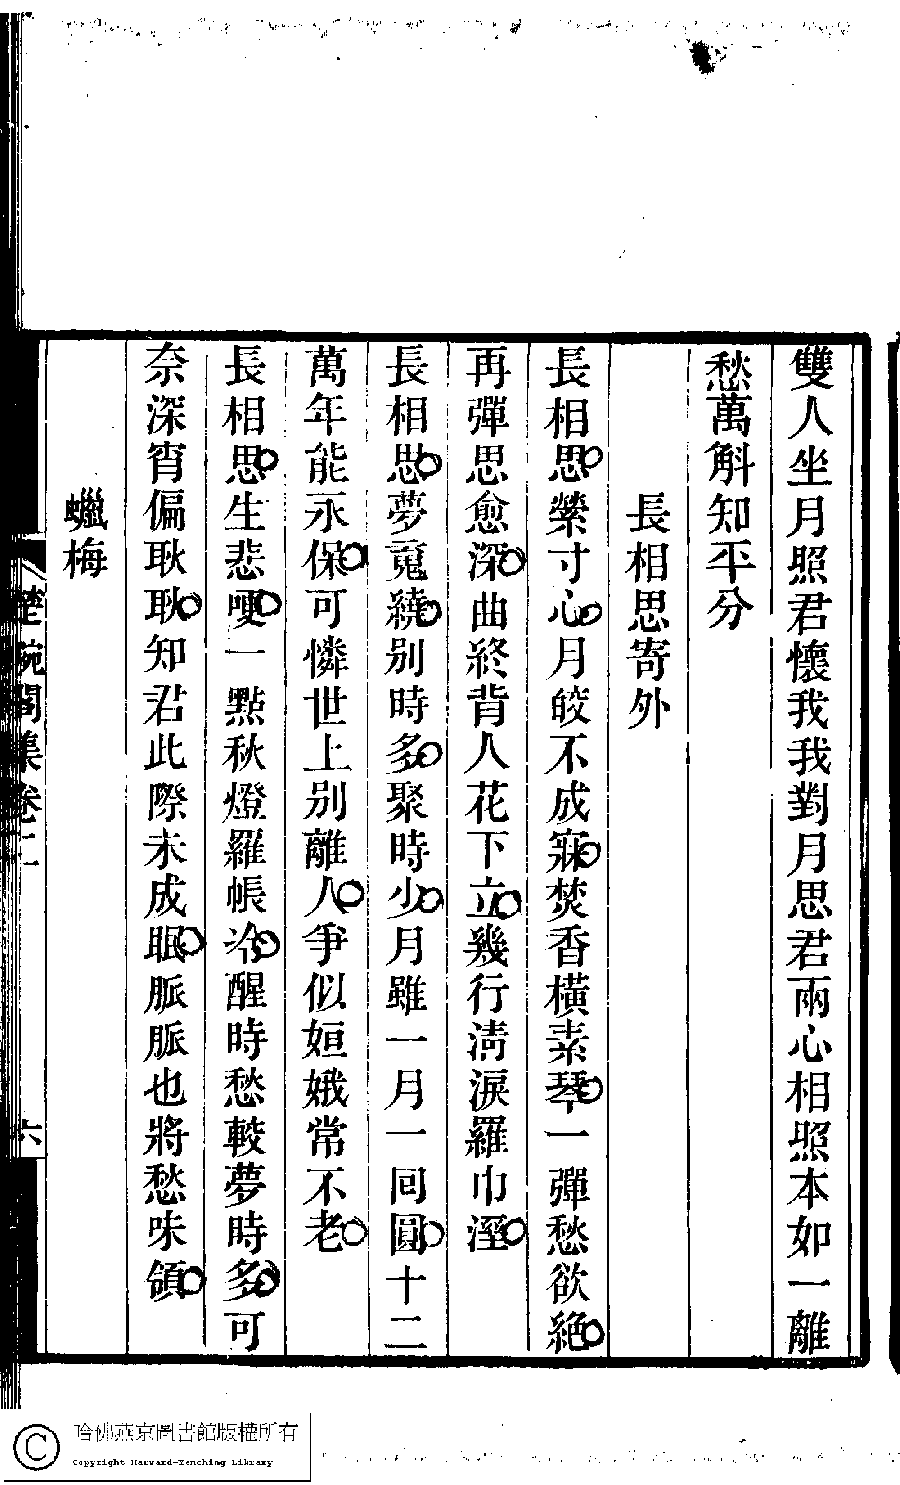 雙人坐月照君懷我我對月思君兩心相照本如一離
愁萬斛知平分
長相思寄外
長相思縈寸心月皎不成寐焚香橫素琴一彈愁欲絶
再彈思愈深曲終背人花下立幾行淸淚羅巾溼
長相思夢魂繞别時多聚時少月雖一月一回圓十二
萬年能永保可憐世上别離人爭似姮娥常不老
長相思生悲哽一點秋燈羅帳冷醒時愁較夢時多可
奈深宵偏耿耿知君此際未成眠脈脈也將愁味領
蠟梅
楚畹閣集卷二
六
哈佛燕京圖書館版權所有
Copyright Harvard-Yenching Library